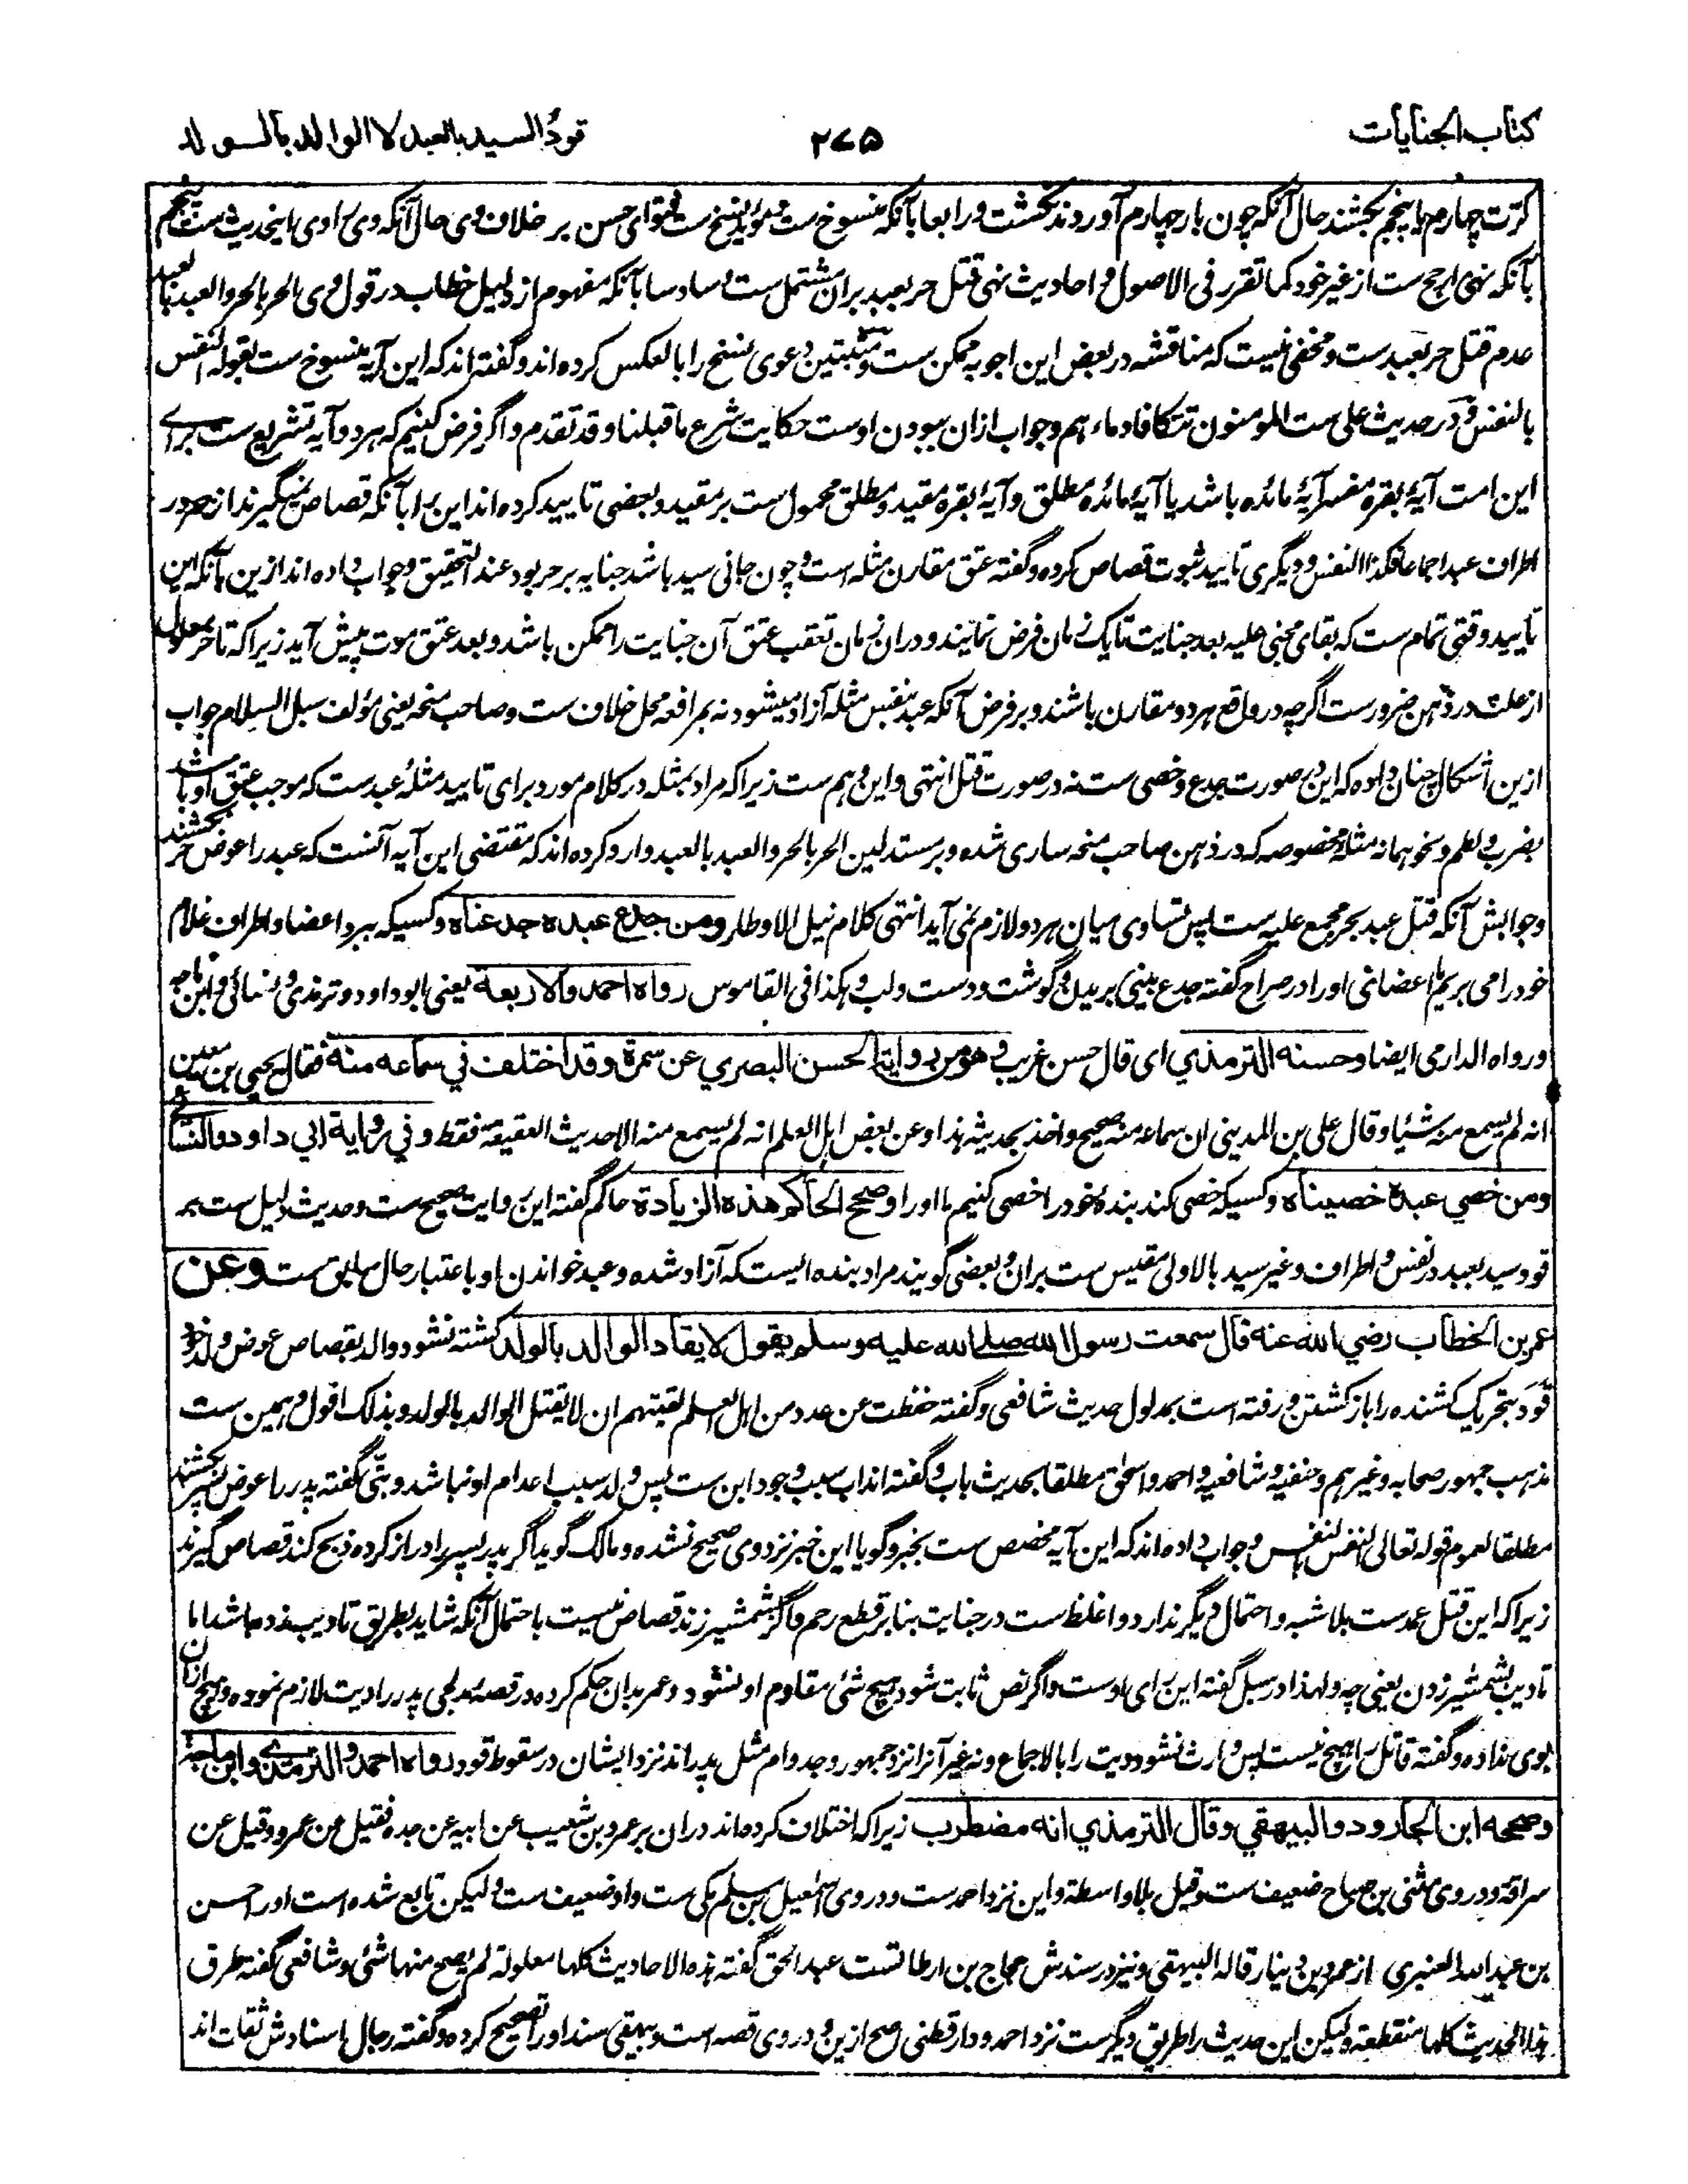 کتاب الجنایات
۲۷۵
قود السید بالعبد لا الوالد بالولد
کرت چهارم یا پنجم بکشند حال آنکه چون بار چهارم آوردند نکشت و رابعا بآنکه منسوخ ست و مؤید نسخ ست فتوای حسن بر خلاف وی حال آنکه وی راوی این حدیث ست پنجم
بآنکه نهی ارجح ست از غیر خود کما تقرر فی الاصول و احادیث نهی قتل حر بعبد بران مشتمل ست و سادسا بآنکه مفهوم از دلیل خطاب در قول وی الحر بالحر والعبد بالعبد
عدم قتل حر بعبد ست و مخفی نیست که مناقشه در بعض این اجوبه ممکن ست و مثبتین دعوی نسخ را بالعکس کرده اند و گفته اند که این آیه منسوخ ست بقوله النفس
بالنفس و در حدیث علی ست المومنون تتکافا دماءهم و جواب ازان ببودن اوست حکایت شرع ما قبلنا و قد تقدم و اگر فرض کنیم که هر دو آیه تشریع ست برای
این امت آیۀ بقره مفسر آیۀ مائده باشد یا آیۀ مائده مطلق و آیۀ بقره مقید و مطلق محمول ست بر مقید و بعضی تایید کرده اند این را بآنکه قصاص نمیگیرند از حر در
اطراف عبد اجماعا فکذا النفس و دیگری تایید ثبوت قصاص کرده و گفته عتق مقارن مثله است و چون جانی سید باشد جنایه بر حر بود عند التحقیق و جواب داده اند ازین بآنکه این
تایید وقتی تمام ست که بقای مجنی علیه بعد جنایت تا یک زمان فرض نمایند و دران زمان تعقب عتق آن جنایت را ممکن باشد و بعد عتق موت پیش آید زیرا که تاخر معلول
از علت در ذهن ضرور ست اگرچه در واقع هر دو مقارن باشند و بر فرض آنکه عبد بنفس مثله آزاد میشود نه بمرافعه محل خلاف ست و صاحب منحه یعنی مؤلف سبل السلام جواب
ازین اشکال چنان داده که این در صورت جدع و خصی ست نه در صورت قتل انتهی و این وهم ست زیرا که مراد بمثله در کلام مورد برای تایید مثلۀ عبد ست که موجب عتق او باشد
بضرب و لطم و نحو همانه مثلۀ مخصوصه که در ذهن صاحب منحه ساری شده و بر مستدلین الحر بالحر والعبد بالعبد وارد کرده اند که مقتضی این آیه آنست که عبد را عوض حر نکشند
و جوابش آنکه قتل عبد بحر مجمع علیه ست پس تساوی میان هر دو لازم نمی آید انتهی کلام نیل الاوطار ومن جدع عبده جدعناه و کسیکه ببرد اعضا و اطراف غلام
خود را می بریم ما اعضای او را در صراح گفته جدع بینی بریدن و گوشت و دست و لب و هکذا فی القاموس رواه احمد والاربعة یعنی ابوداود و ترمذی و نسائی و ابن ماجه
ورواه الدارمی ایضا وحسنه الترمذي ای قال حسن غریب وهو من رواية الحسن البصري عن سمرة وقد اختلف في سماعه منه فقال یحیی بن معین
انه لم یسمع منه شیئا وقال علی بن المدینی ان سماعه منه صحیح واخذ بحدیثه هذا وعن بعض اهل العلم انه لم یسمع منه الا حدیث العقیقة فقط وفي رواية ابي داود والنسائي
ومن خصي عبده خصيناه و کسیکه خصی کند بندۀ خود را خصی کنیم ما او را وصحح الحاكم هذه الزيادة حاکم گفته این روایت صحیح ست و حدیث دلیل ست بر
قود سید بعبد در نفس و اطراف و غیر سید بالاولی مقیس ست بران و بعضی گویند مراد بنده ایست که آزاد شده و عبد خواندن او باعتبار حال سابق ست وعن
عمر بن الخطاب رضي الله عنه قال سمعت رسول الله صلى الله عليه وسلم يقول لا يقاد الوالد بالولد کشته نشود والد بقصاص عوض ولد خود
قود بتحریک کشنده را باز کشتن و رفته است بمدلول حدیث شافعی و گفته حفظت عن عدد من اهل العلم لقیتهم ان لا یقتل الوالد بالولد وبذلک اقول و همین ست
مذهب جمهور صحابه و غیرهم و حنفیه و شافعیه و احمد و اسحٰق مطلقا بحدیث باب و گفته اند اب سبب وجود ابن ست پس ولد سبب اعدام او نباشد و بتی گفته پدر را عوض پسر بکشند
مطلقا لعموم قوله تعالی النفس بالنفس و جواب داده اند که این آیه مخصص ست بخبر و گویا این خبر نزد وی صحیح نشده و مالک گوید اگر پدر پسر را دراز کرده ذبح کند قصاص گیرند
زیرا که این قتل عمد ست بلا شبه و احتمال دیگر ندارد و اغلظ ست در جنایت بنا بر قطع رحم و اگر بشمشیر زند قصاص نیست باحتمال آنکه شاید بطریق تادیب زده باشد اما
تادیب بشمشیر زدن یعنی چه ولهذا در سبل گفته این رای اوست و اگر نص ثابت شود هیچ شئ مقاوم او نشود و عمر بدان حکم کرده در قصۀ مدلجی پدر را دیت لازم نموده و هیچ ازان
بوی نداده و گفته قاتل را هیچ نیست پس وارث نشود دیت را بالاجماع و نه غیر آنرا نزد جمهور و جد و ام مثل پدر اند نزد ایشان در سقوط قود رواه احمد والترمذي وابن ماجة
وصححه ابن الجارود والبيهقي وقال الترمذي انه مضطرب زیرا که اختلاف کرده اند دران بر عمرو بن شعیب عن ابیه عن جده فقیل عن عمرو وقیل عن
سراقة و در وی مثنی بن صباح ضعیف ست وقیل بلا واسطة و این نزد احمد ست و در وی اسمٰعیل بن مسلم مکی ست و او ضعیف ست ولیکن تابع شده است او را حسن
بن عبید الله العنبری از عمرو بن دینار قاله البیهقی و نیز در سندش حجاج بن ارطاتست عبد الحق گفته هذه الاحادیث کلها معلولة لم یصح منها شئ و شافعی گفته طرق
هذا الحدیث کلها منقطعة ولیکن این حدیث را طریق دیگر ست نزد احمد و دارقطنی اصح ازین و در وی قصه است و بیهقی سند او را تصحیح کرده و گفته رجال اسنادش ثقات اند